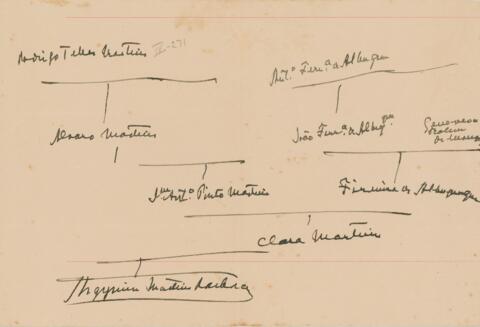 Rodrigo Telles Martins II-271
Ant.º Fern.ª de Albuquerque
Alvaro Martins
João Fern.ª de Albuq.
Genoveva
Ant.º Pinto Martins
Firmina de Albuquerque
Clara Martins
Martins